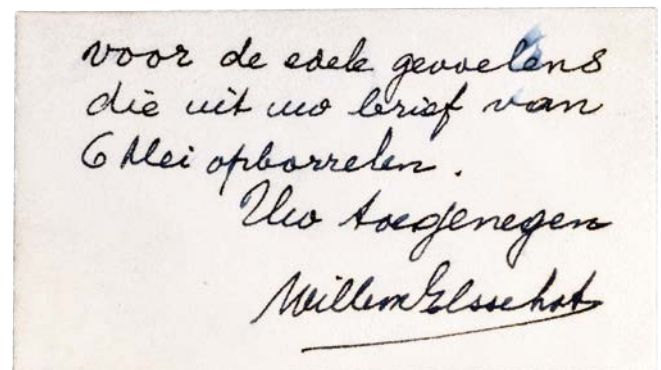 voor de edele gevoelens
die uit uw brief van
6 Mei opborrelen.
Uw toegenegen
Willem Elsschot